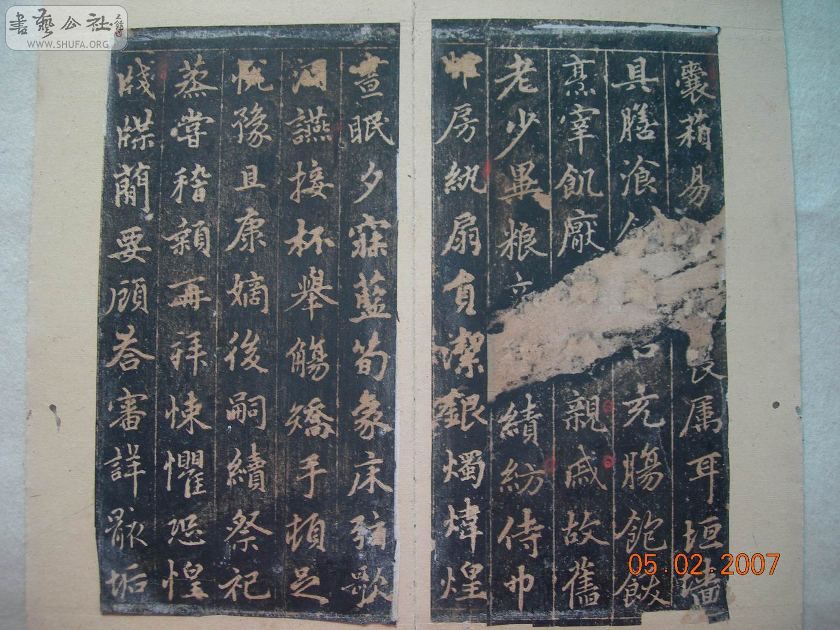 書藝公社
www.SHUFA.ORG
囊箱易 畏属耳垣墙
具膳湌 口充腸飽飫
烹宰飢厭 親戚故舊
老少異粮 績紡侍巾
房紈扇員潔銀燭煒煌
晝眠夕寐藍筍象床弦歌
酒讌接杯舉觴矯手頓足
悅豫且康嫡後嗣續祭祀
蒸嘗稽顙再拜悚懼恐惶
牋牒蕳要顧荅審詳骸垢
05.02.2007